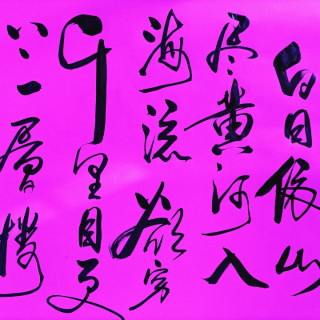 白日依山
尽黄河入
海流欲穷
千里目更
上一層楼